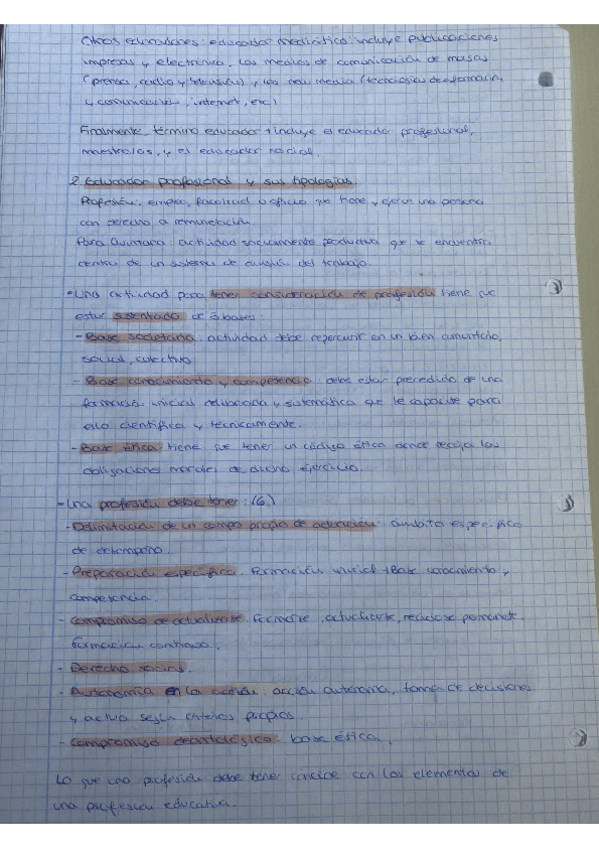 Otros educadores: educador mediático: incluye publicaciones
impresas y electrónica, los medios de comunicación de masas
(prensa, radio y televisión) y los new media (tecnologías de información
y comunicación, internet, etc)
Finalmente término educador incluye el educador profesional,
maestro/as, y el educador social.
2. Educador profesional y sus tipologías
Profesión: empleo, facultad u oficio que tiene y ejerce una persona
con derecho a remuneración.
Para Quintana: actividad socialmente productiva que se encuentra
dentro de un sistema de división del trabajo.
• Una actividad para tener consideración de profesión tiene que
estar sustentada de 3 bases:
- Base societaria: actividad debe repercutir en un bien comunitario,
social, colectivo
- Base conocimiento y competencia: debe estar precedido de una
formación inicial adecuada y sistemática que le capacite para
ello científica y técnicamente.
- Base ética: tiene que tener un código ético donde recoja las
obligaciones morales de dicho ejercicio.
- Una profesión debe tener: (6)
- Delimitación de un campo propio de actuación: ámbito específico
de desempeño.
- Preparación específica. Formación inicial + Base conocimiento y
competencia.
- Compromiso de actualizarse. Formarse, actualizarse, reciclarse permanente.
Formación continua.
- Derecho social.
- Autonomía en la acción: acción autónoma, toma de decisiones
y actua según criterios propios.
- Compromiso deontológico: base ética.
Lo que una profesión debe tener coincide con los elementos de
una profesión educativa.